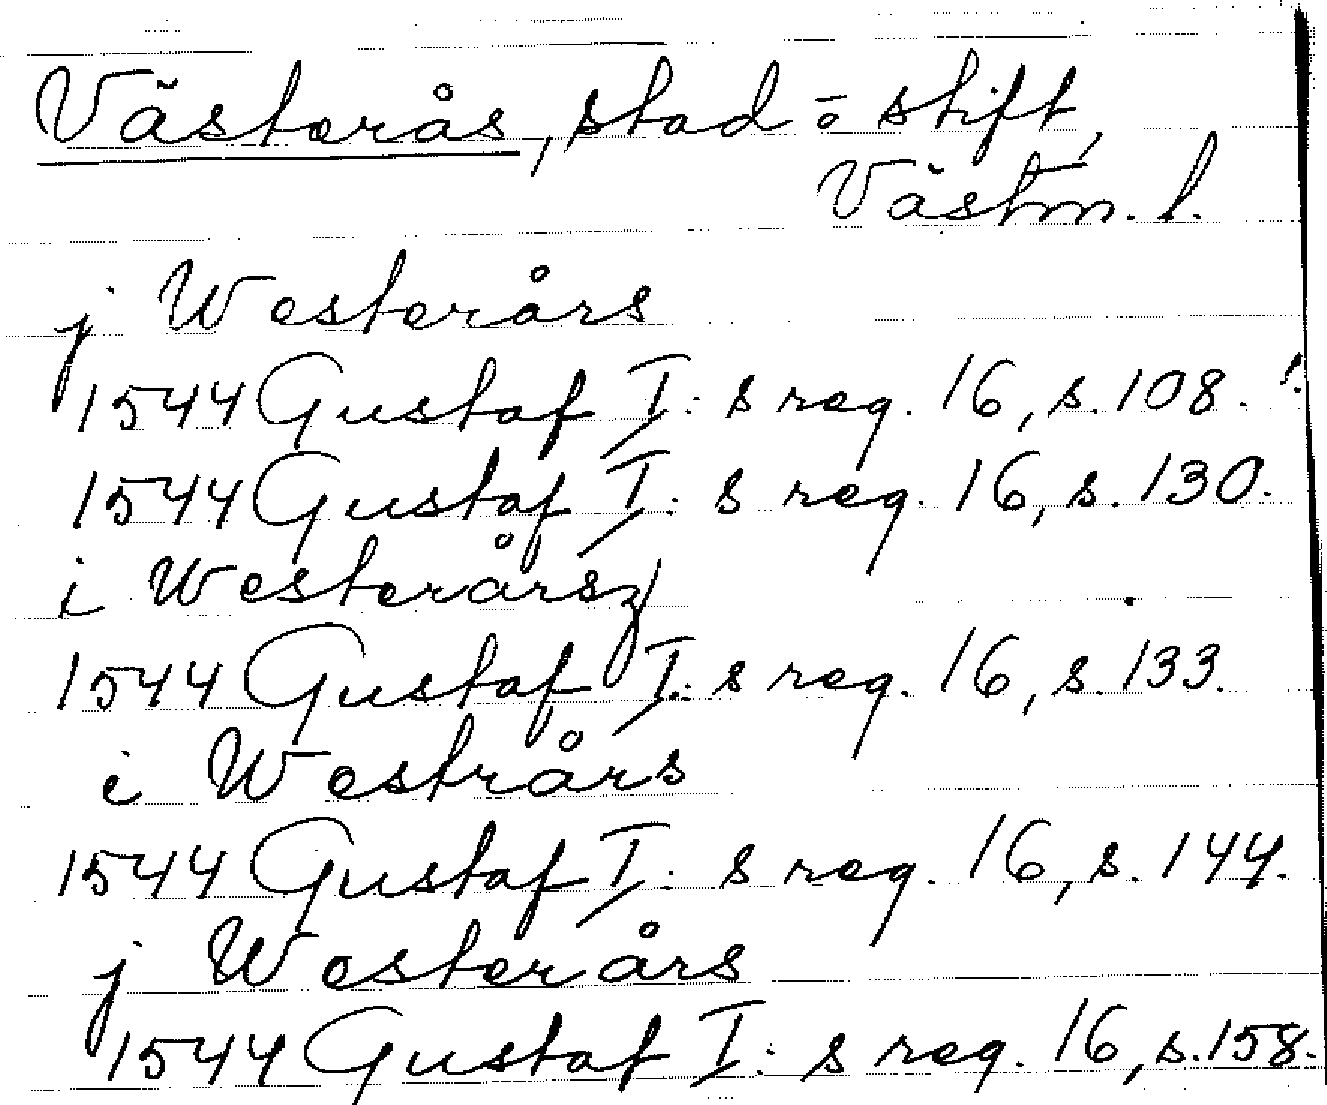 Västerås, stad o stift,
Västm. l.
j Westerårs
1544 Gustaf I:s reg. 16, s. 108.
1544 Gustaf I:s reg. 16, s. 130.
i Westerårsz
1544 Gustaf I:s reg. 16, s. 133.
i Westrårs
1544 Gustaf I:s reg. 16, s. 144.
j Westerårs
1544 Gustaf I:s reg. 16, s. 158.